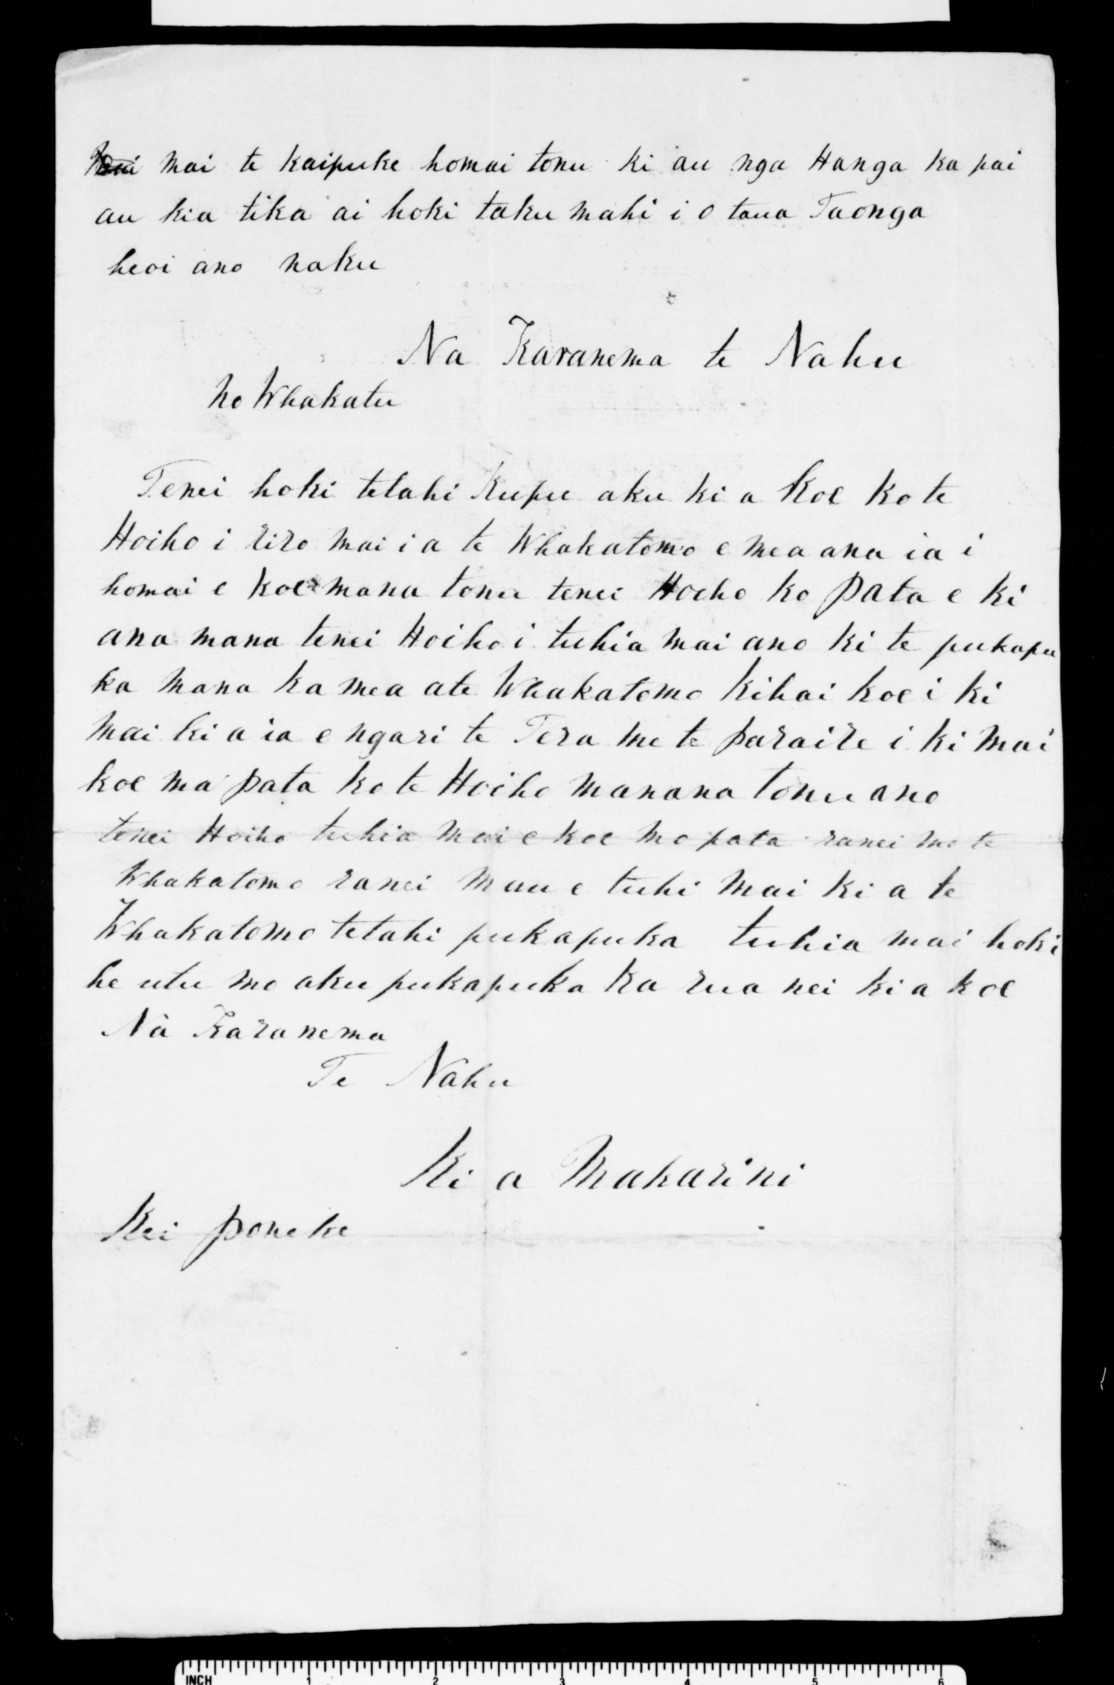 mai te kaipuke homai tonu ki au nga Hanga ka pai
au kia tika ai hoki taku mahi i o taua Taonga
heoi ano naku
Na Karanema te Nahu
no Whakatu
Tenei hoki tetahi Kupu aku ki a koe ko te
Hoiho i riro mai i a te Whakatomo e mea ana ia i
homai e koe mana tonu tenei Hoiho ko pata e ki
ana mana tenei Hoiho i tuhia mai ano ki te pukapu
ka mana ka mea ate Whakatomo kihai koe i ki
mai ki a ia e ngari te Tera me te paraire i ki mai
koe ma pata ko te Hoiho manana tonu ano
tenei Hoiho tuhia mai e koe mo pata ranei mo te
Whakatomo ranei mau e tuhi mai ki a te
Whakatomo tetahi pukapuka tuhia mai hoki
he utu mo aku pukapuka ka rua nei ki a koe
Na Karanema
Te Nahu
Ki a Makarini
Kei poneke
INCH 1 2 3 4 5 6